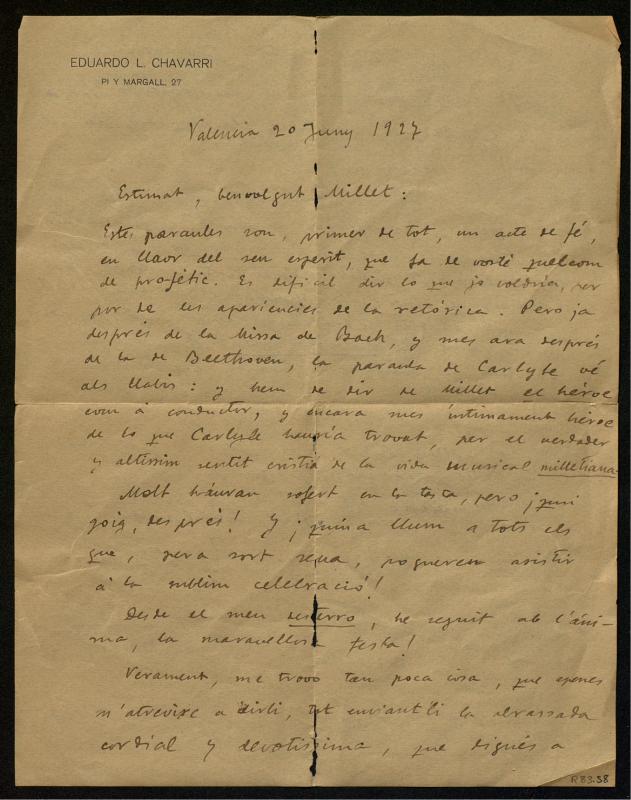 EDUARDO L. CHAVARRI
PI Y MARGALL, 27
Valencia 20 Juny 1927
Estimat, benvolgut Millet:
Estes paraules son, primer de tot, un acte de fé,
en llaor del seu esperit, que fa de vosté quelcom
de profétic. Es dificil dir lo que jo voldria, per
por de les apariencies de la retórica. Pero ja
després de la Missa de Bach, y mes ara després
de la de Beethoven, la paraula de Carlyle vé
als llabis: y hem de dir de Millet el héroe
com á conductor, y encara mes íntimament héroe
de lo que Carlyle hauría trovat, per el verdader
y altíssim sentit cristiá de la vida musical milletiana.
Molt háuran sofert en la tasta, pero ¡quin
goig, després! Y ¡quina llum a tots els
que, pera sort seua, pogueren asistir
á la sublim celebració!
Desde el meu desterro, he seguit ab l'áni-
ma, la maravellosa festa!
Verament, me trovo tan poca cosa, que apenes
m'atrevixc a dirli, tot enviantli la abrassada
cordial y devotissima, que digués a
R83.38